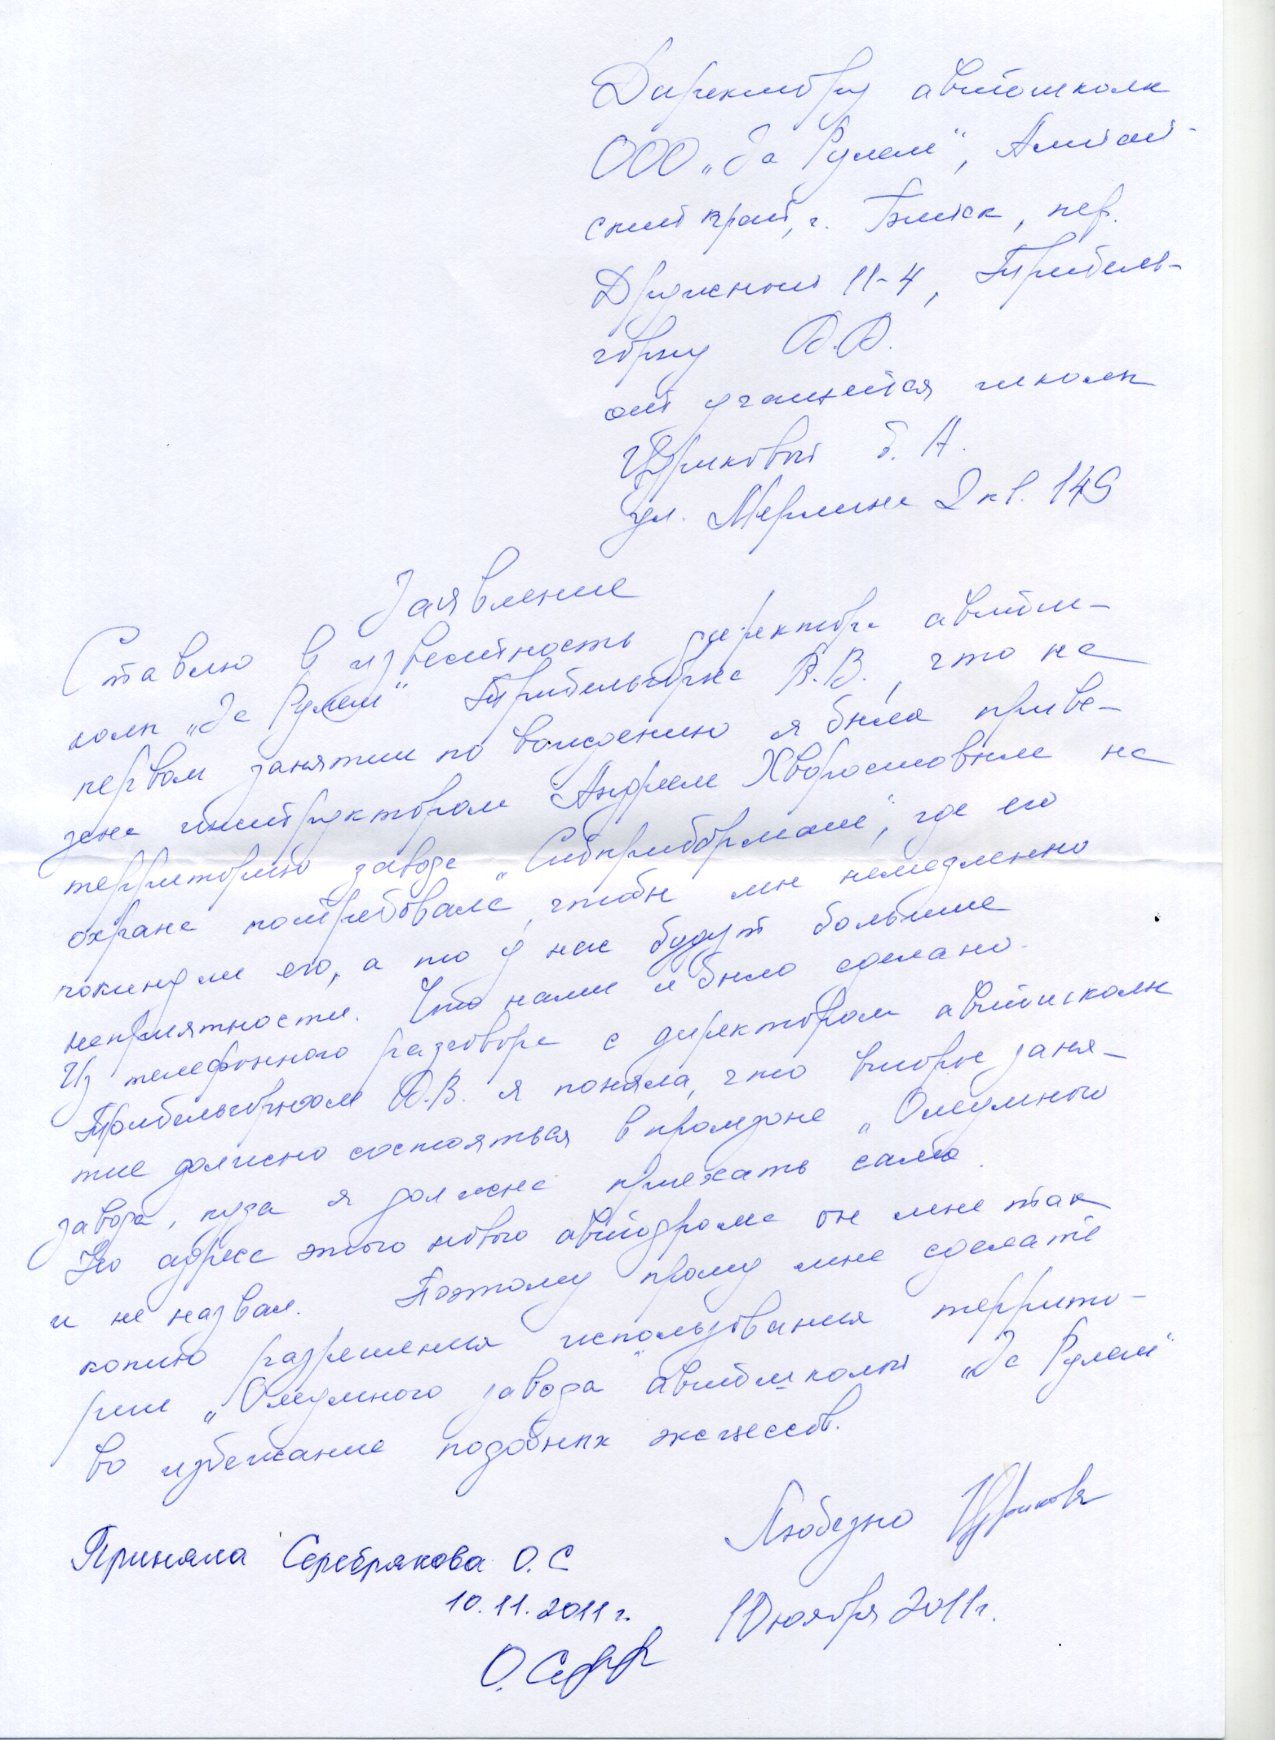 Директору автошколы
ООО „За Рулем", Алтай-
ский край, г. Бийск, пер.
Дружный 11-4,
Д.В.
от учащейся школы
Цориковой Б. А.
ул. Мерлина 2 кв. 149
Заявление
Ставлю в известность директора автош-
колы „За Рулем" В.В., что на
первом занятии по вождению я была приве-
зена инструктором Андреем Хворостовым на
территорию завода „Сибприбормаш", где его
охрана потребовала, чтобы мы немедленно
покинули его, а то у нас будут большие
неприятности. Что нами и было сделано.
Из телефонного разговора с директором автошколы
Д.В. я поняла, что второе заня-
тие должно состояться в промзоне „Олеумного
завода, куда я должна приехать сама.
Но адрес этого нового автодрома он мне так
и не назвал. Поэтому прошу мне сделать
копию разрешения использования террито-
рии „Олеумного завода" автошколой „За Рулем"
во избежание подобных эксцессов.
Любезно Цорикова
Приняла Серебрякова О.С
10.11.2011 г.
10 ноября 2011г.
О. Серр